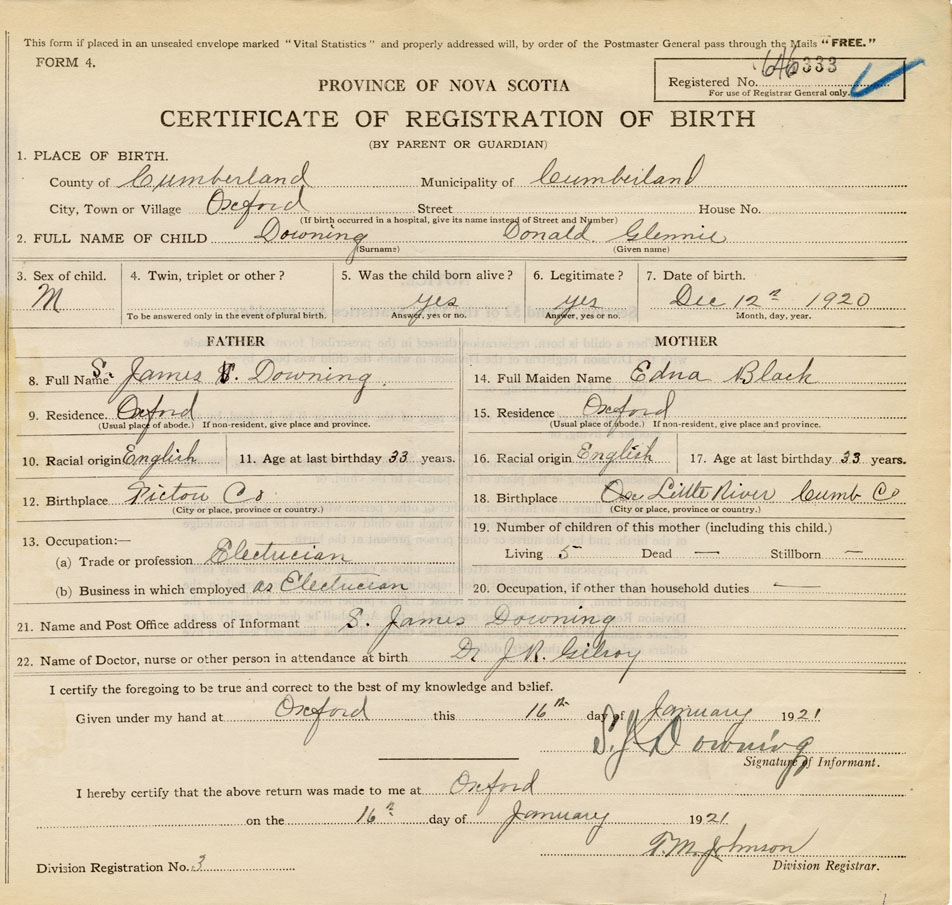 This form if placed in an unsealed envelope marked "Vital Statistics" and properly addressed will, by order of the Postmaster General pass through the Mails "FREE."
FORM 4.
646333
Registered No.
For use of Registrar General only.
PROVINCE OF NOVA SCOTIA
CERTIFICATE OF REGISTRATION OF BIRTH
(BY PARENT OR GUARDIAN)
1. PLACE OF BIRTH.
County of Cumberland Municipality of Cumberland
City, Town or Village Oxford Street House No.
(If birth occurred in a hospital, give its name instead of Street and Number)
2. FULL NAME OF CHILD Downing Donald Glennie
(Surname) (Given name)
3. Sex of child. 4. Twin, triplet or other? 5. Was the child born alive? 6. Legitimate? 7. Date of birth.
M yes yes Dec 12th 1920
To be answered only in the event of plural birth. Answer, yes or no. Answer, yes or no. Month, day, year.
FATHER MOTHER
8. Full Name S. James Downing. 14. Full Maiden Name Edna Black
9. Residence. Oxford 15. Residence Oxford
(Usual place of abode.) If non-resident, give place and province. (Usual place of abode.) If non-resident, give place and province.
10. Racial origin English 11. Age at last birthday 33 years. 16. Racial origin English 17. Age at last birthday 33 years.
12. Birthplace Pictou Co 18. Birthplace Little River Cumb Co
(City or place, province or country.) (City or place, province or country.)
13. Occupation:— 19. Number of children of this mother (including this child.)
(a) Trade or profession Electrician Living 5 Dead — Stillborn —
(b) Business in which employed as Electrician 20. Occupation, if other than household duties —
21. Name and Post Office address of Informant S. James Downing
22. Name of Doctor, nurse or other person in attendance at birth Dr J.R. Gilroy
I certify the foregoing to be true and correct to the best of my knowledge and belief.
Given under my hand at Oxford this 16th day of January 1921
S. J. Downing
Signature of Informant.
I hereby certify that the above return was made to me at Oxford
on the 16th day of January 1921
T. M. Johnson
Division Registration No. 3 Division Registrar.